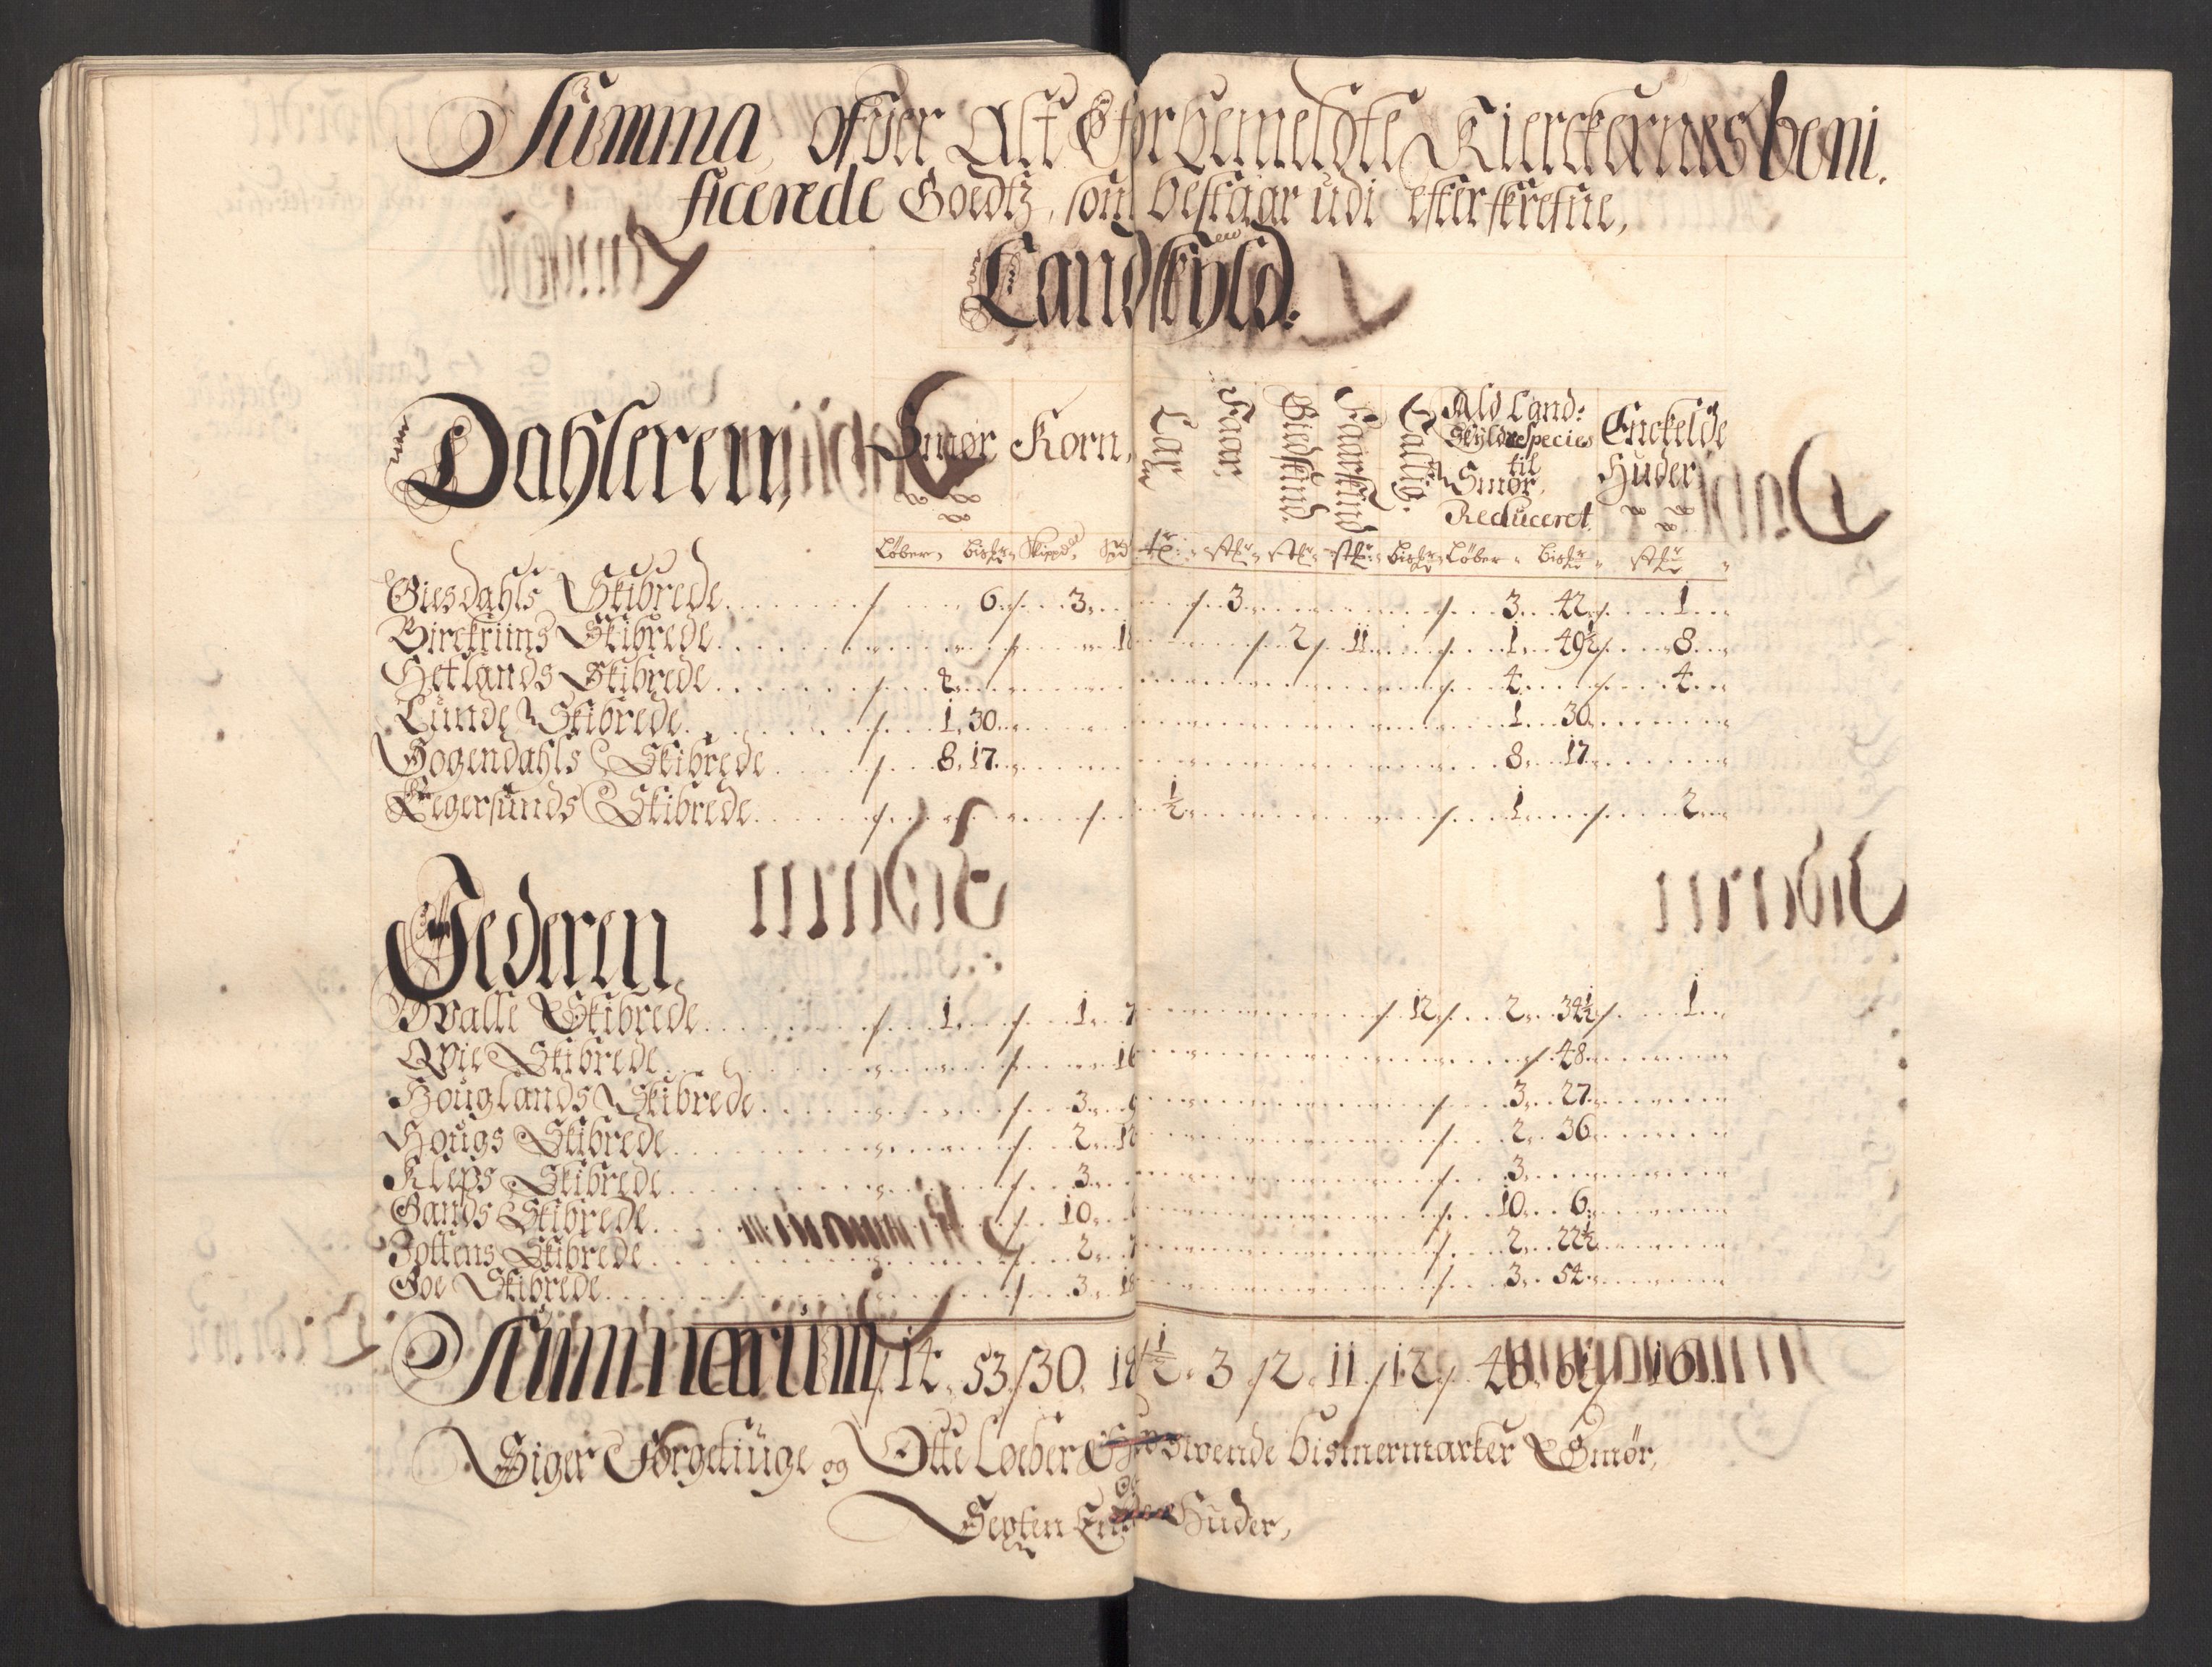 Summa ofver Alt Forbemeldte Kierckernes beni-
ficerede Goedtz, som bestaar udi efterskrefne,
Landskyld.
Dahleren, Smør Korn, Faar, Giedskind, Faarskind, Saltt, Ald Land: Enckelde
Skyld Species Huder
til
Smør,
Reduceret
Løber, Bismr Skippd, Spd stkr stkr stkr Bismr Løber Bismr stkr
Giesdahls Skibrede 6 / 3 / 3 / 3 42 / 1
Birckriims Skibrede / 2 / 11 / 1 49½ / 8
Hetlands Skibrede / 4 / 4 / 4
Lunde Skibrede / 1, 30 1 30
Sogendahls Skibrede / 8, 17 8 17
Eegersunds Skibrede / / ½ / 1 / 2
Jederen
Bvalle Skibrede / 1 / 1 7 / 12 / 2 34½ / 1
Qvie Skibrede / 16 / 48
Houglands Skibrede / 3 / 3 27
Hougs Skibrede / 2 12 / 2 36
Kleps Skibrede / 3 / 3
Gands Skibrede / 10 / 10 6
Jottens Skibrede / 2 7 / 2 22½
Goe Skibrede / 3 18 / 3 54
Summarum / 14, 53 / 30, 18 / ½ 3 / 2 11 / 12 / 48 / 16
Siger Førgetiuge og Otte Løeber bismermarker Smør,
og
Sexten Huder,